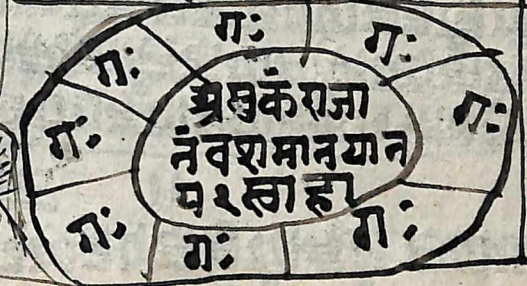 गः
गः
गः
गः
गः
गः
गः
गः
अमुकं राजा
नं वशमानयान
य २ स्वाहा